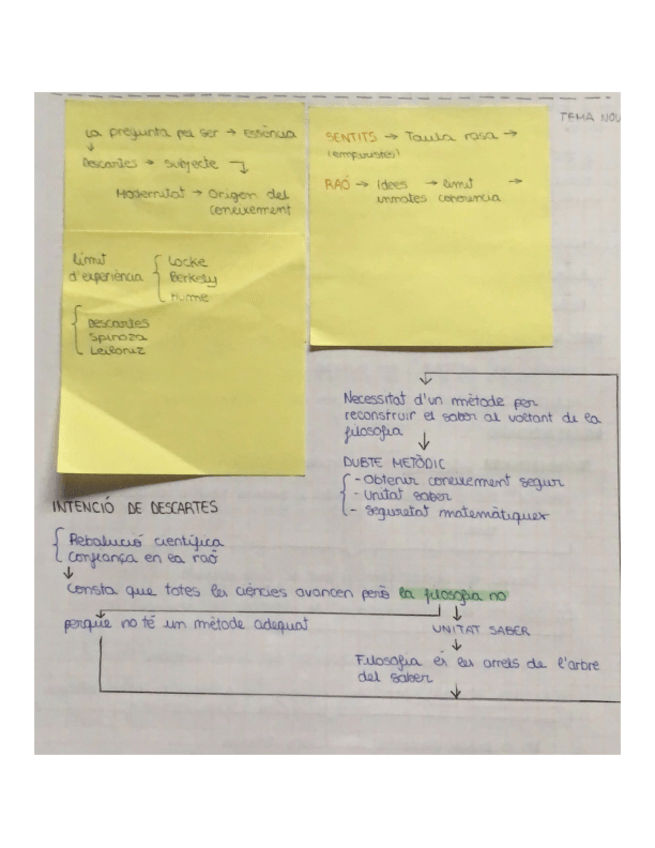 La pregunta pel ser → essència
↓
Descartes → subjecte
Modernitat → Origen del
coneixement
Límit
d'experiència { Locke
Berkely
Hume
{ Descartes
Spinoza
Leibniz
SENTITS → Taula rosa →
(empiristes)
RAÓ → Idees → límit →
innates conciencia
TEMA NOU
↓
Necessitat d'un mètode per
reconstruir el saber al voltant de la
filosofia
↓
DUBTE METÒDIC
{ - Obtenir coneixement segur
- Unitat saber
- Seguretat matemàtiques
INTENCIÓ DE DESCARTES
{ Rebolució científica
Confiança en la raó
↓
Consta que totes les ciències avancen però la filosofia no
perquè no té un mètode adequat
↓
UNITAT SABER
↓
Filosofia és les arrels de l'arbre
del saber